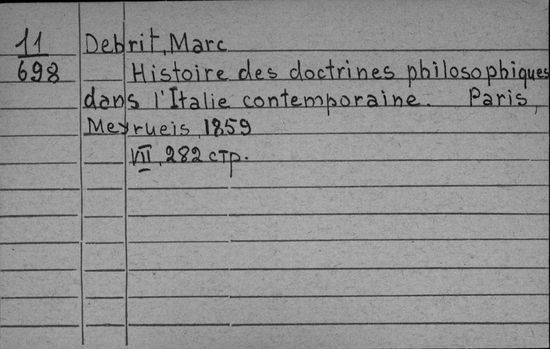 11 Debrit, Marc
698 Histoire des doctrines philosophiques
dans l'Italie contemporaine. Paris,
Meyrueis, 1859
VII, 282 стр.